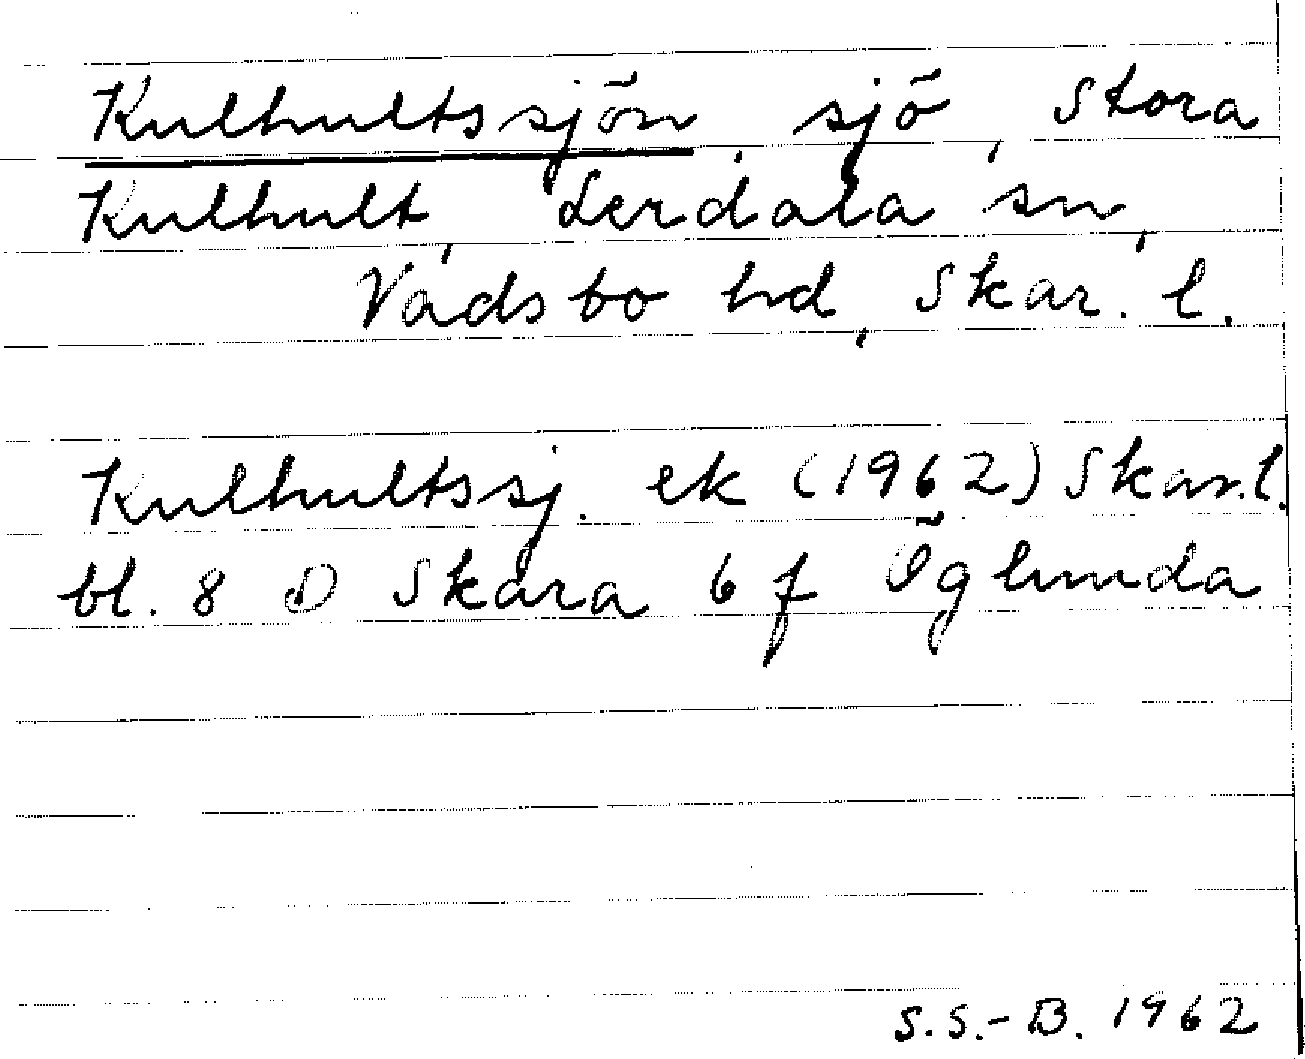 Kulhultssjön, sjö, Stora
Kulhult, Lerdala sn,
Vadsbo hd, Skar. l.
Kulhultssj. ek (1962) Skar.l.
bl. 8 D Skara 6 f Öglunda
S.S.-B. 1962